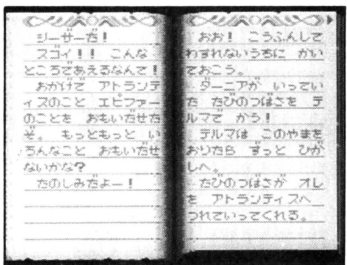 シーザーだ！
スゴイ！！　こんな
ところであえるなんて！
おかげで　アトランテ
ィスのこと　エピファー
のことを　おもいだせた
ぞ。　もっともっと　い
ろんなこと　おもいだせ
ないかな？
たのしみだよー！
おお！　こうふんして
わすれないうちに　かい
ておこう。
ダーニアが　いってい
た　たびのつばさを　テ
ルマで　かう！
テルマは　このやまを
おりたら　ずっと　ひが
しへ。
たびのつばさが　オレ
を　アトランティスへ
つれていってくれる。